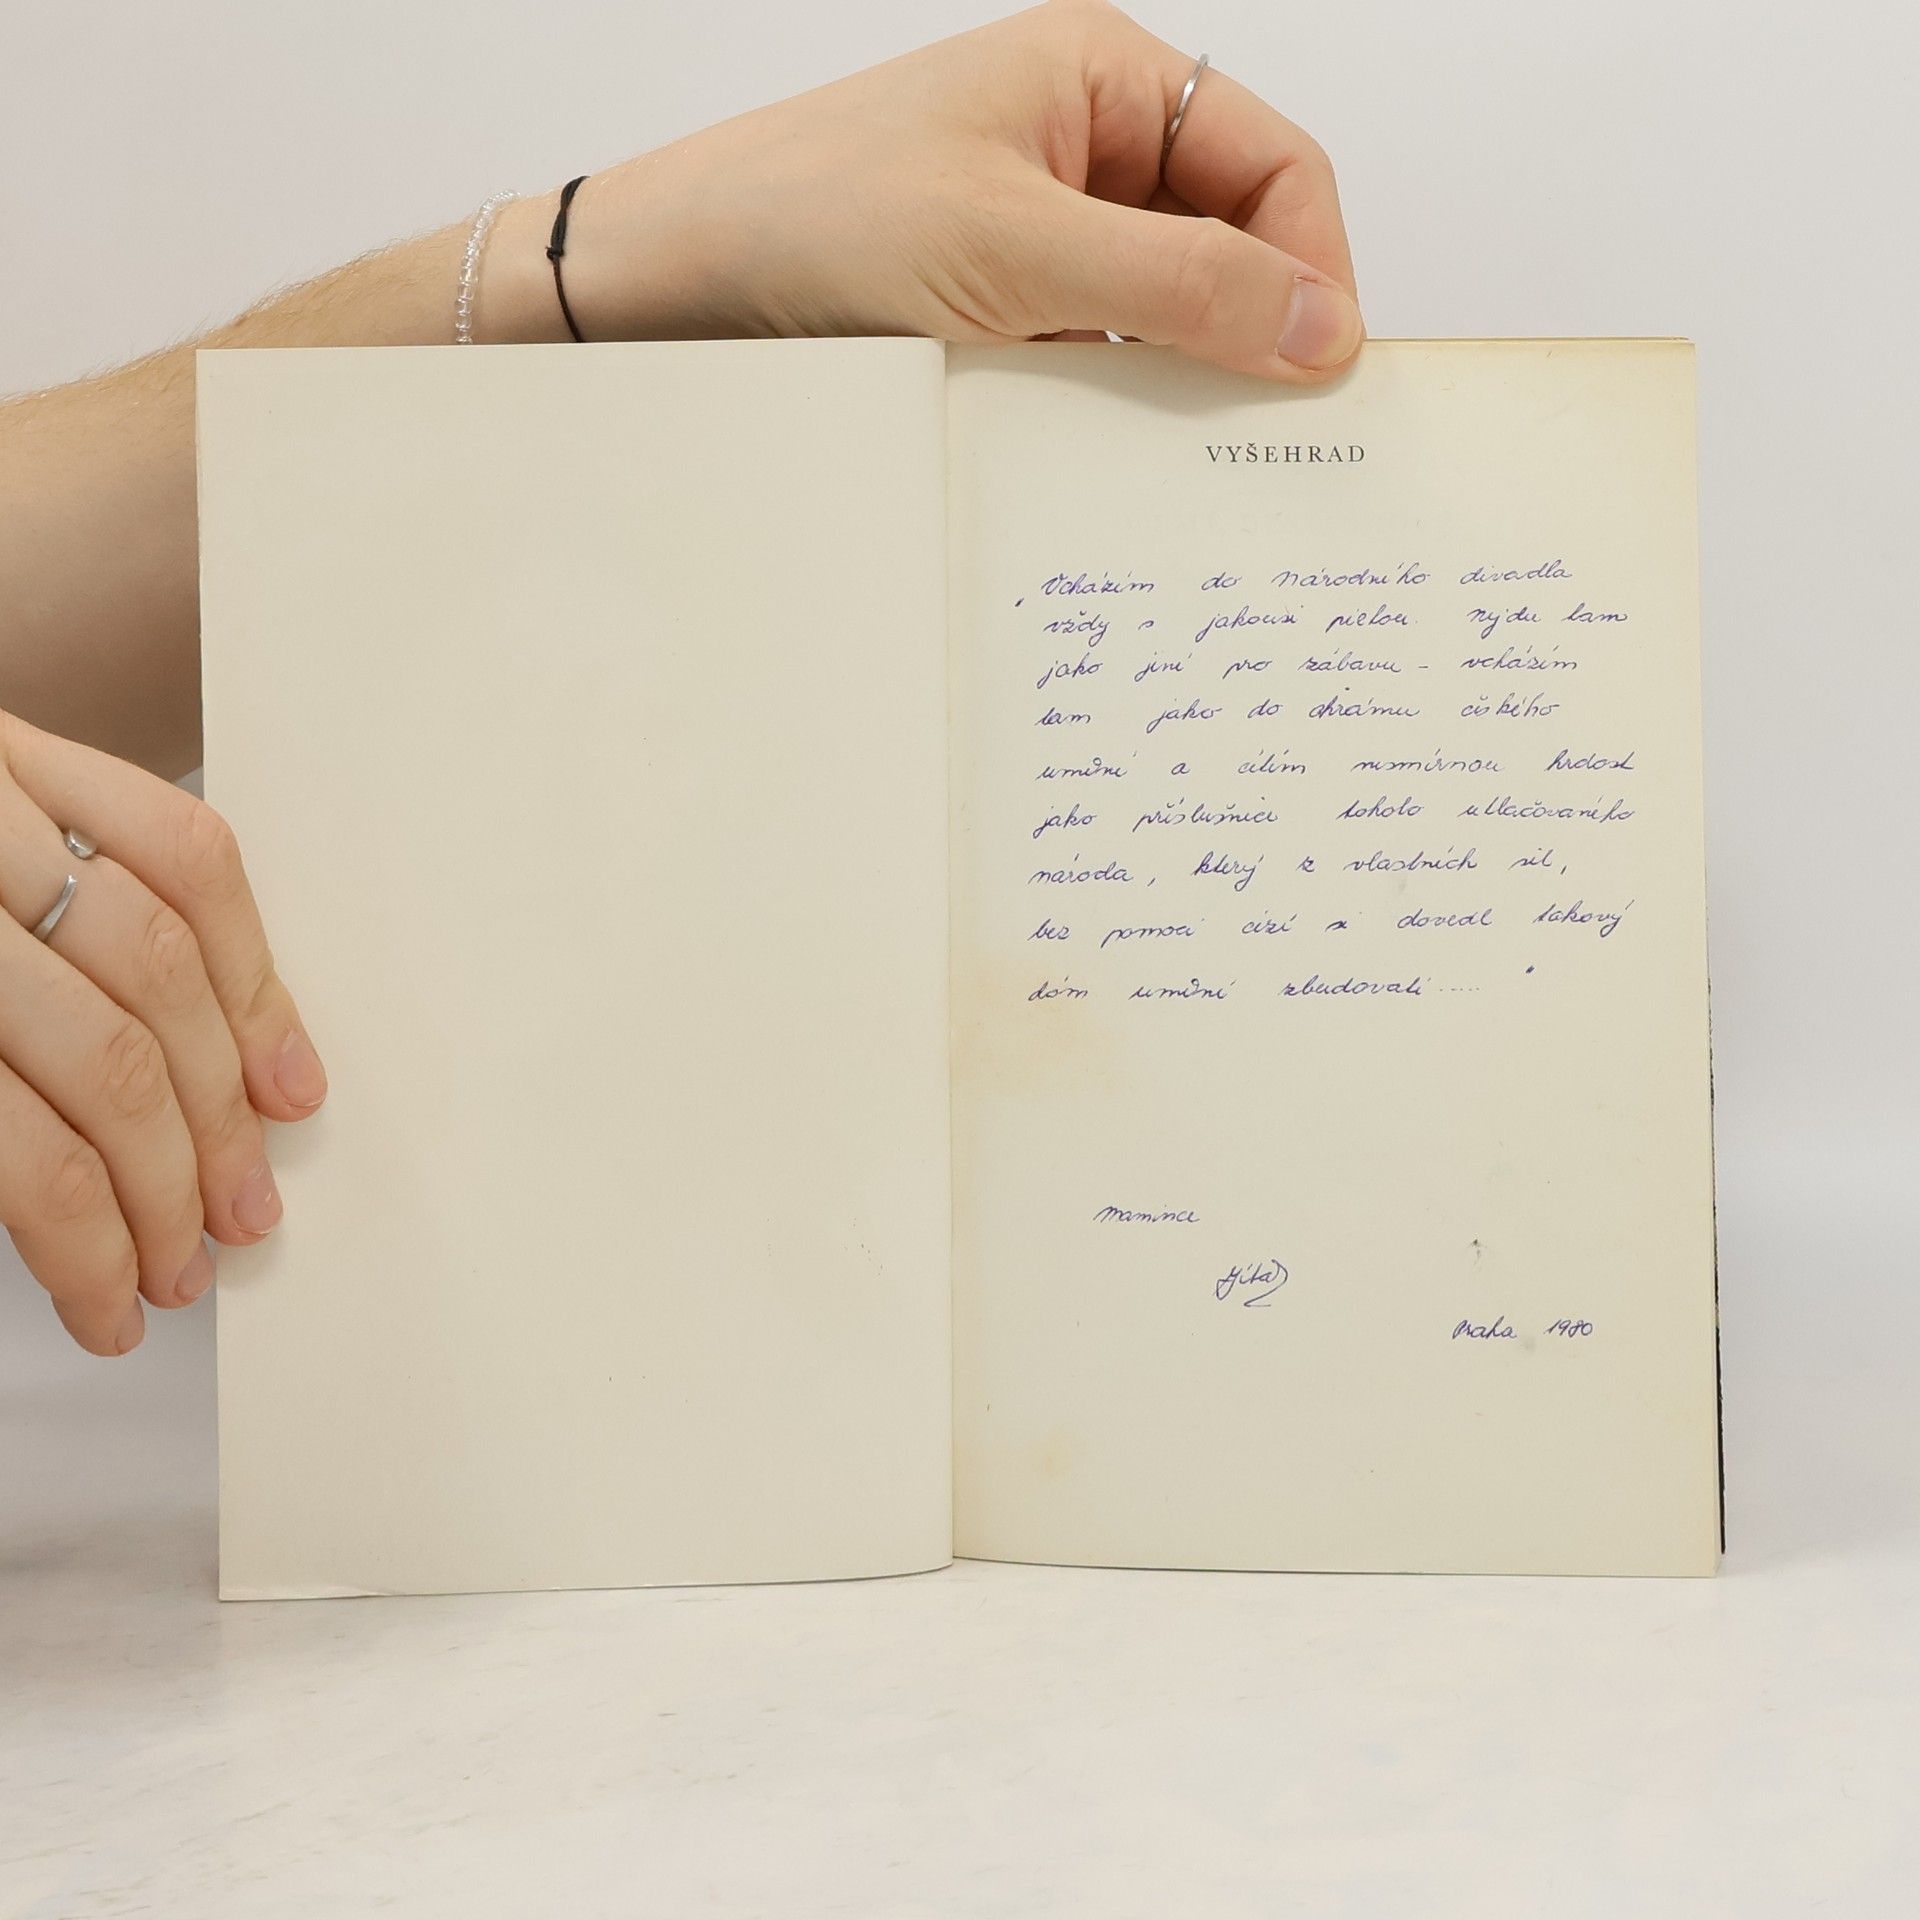 VYŠEHRAD
„Vcházím do Národního divadla
vždy s jakousi pietou. Nejdu tam
jako jiní pro zábavu - vcházím
tam jako do chrámu českého
umění a cítím nesmírnou hrdost
jako příslušnice tohoto utlačovaného
národa, který z vlastních sil,
bez pomoci cizí si dovedl takový
dóm umění zbudovati ....."
Mamince
Jitka
Praha 1980